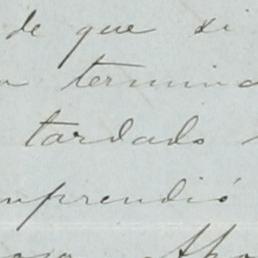 de que si
termin
tardado
mprendió